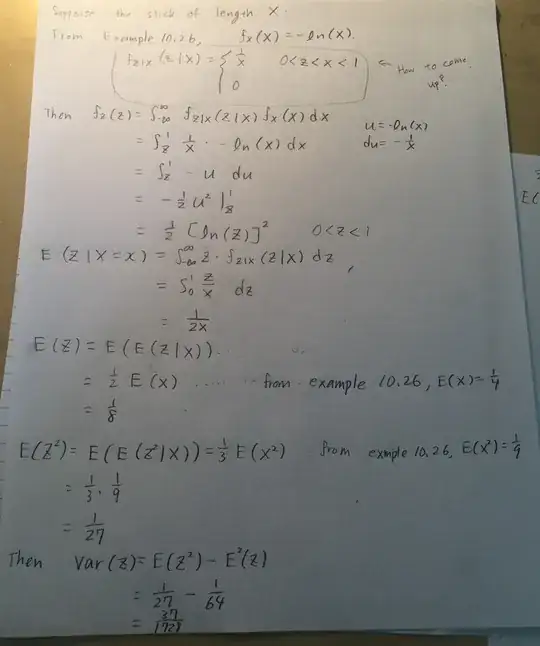 Suppose the stick of length X.
From Example 10.26, fx(X) = -ln(X).
fz|x(z|x) = { 1/x 0<z<x<1 ← How to come up?
0
Then fz(z) = ∫-∞^∞ fz|x(z|x) fx(x) dx
u = -ln(x)
= ∫z^1 1/x · -ln(x) dx
du = -1/x
= ∫z^1 - u du
= -1/2 u² |z^1
= 1/2 [ln(z)]² 0<z<1
E(Z|X=x) = ∫-∞^∞ z · fz|x(z|x) dz
= ∫0^1 z/x dz
= 1/2x
E(Z) = E(E(Z|X))..
= 1/2 E(X) ..... from example 10.26, E(X)=1/4
= 1/8
E(Z²) = E(E(Z²|X)) = 1/3 E(X²) from exmple 10.26, E(X²)=1/9
= 1/3 · 1/9
= 1/27
Then Var(Z) = E(Z²) - E²(Z)
= 1/27 - 1/64
= 37/1728
E(